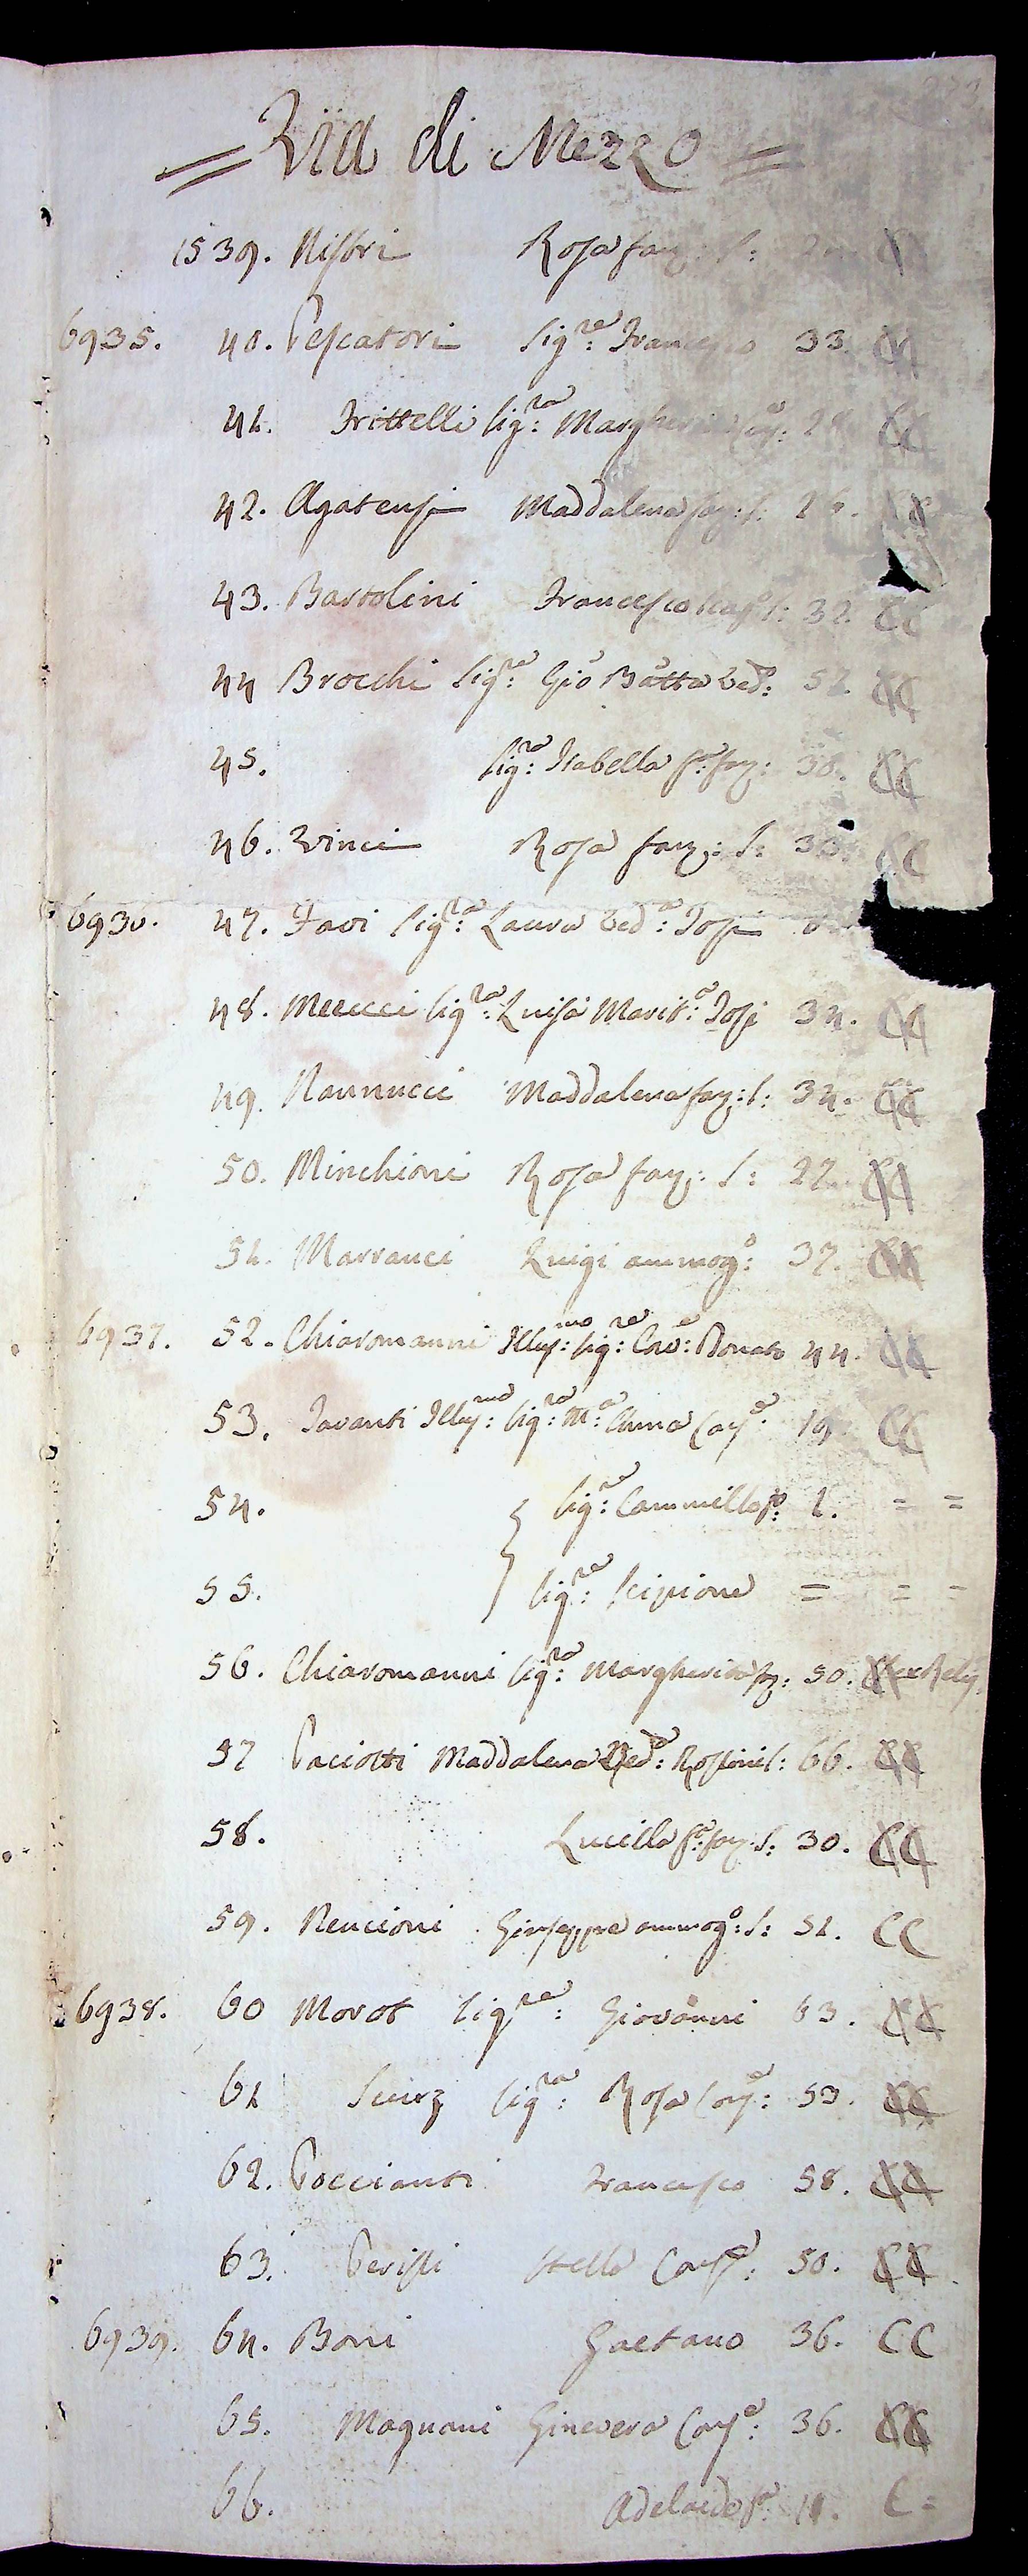 = Via di Mezzo =
1539. Nistri Rosa fan: s:
6935. 40. Pescatori Sig:re Francesco 33.
41. Frittelli Sig:ra Margherita
42. Agatensi Maddalena fan: s:
43. Bartolini Francesco s: 32. CC
44 Brocchi Sig:re Gio Batta Ved:o 52. CC
45. Sig:ra Isabella fa: fan: 30. CC
46. Vinci Rosa fan: s: 33. CC
6936. 47. Favi Sig:ra Laura Ved:a Tosi
48. Meucci Sig:ra Luisa Marit:a Tosi 34. CC
49. Nannucci Maddalena fan: s: 34. CC
50. Minchioni Rosa fan: s: 27. CC
51. Marranci Luigi ammog:o 37. CC
6937. 52. Chiaromanni Illus:mo Sig:re Cav:e Donato 44. CC
53. Illus:ma Sig:ra M:a Anna Con:e 19. CC
54. Sig:re Cammillo fo: 1. = =
55. Sig:re Scipione = = =
56. Chiaromanni Sig:ra Margherita fa: 50. CC
57 Paciotti Maddalena Ved:a s: 66. CC
58. Lucilla fa: fan: s: 30. CC
59. Rencioni Giuseppe ammog:o s: 51. CC
6938. 60 Morot Sig:re Giovanni 63. CC
61 Sig:ra Rosa Con:e 53. CC
62. Poccianti Francesco 58. CC
63. Stella Con:e 50. CC
6939. 64. Boni Gaetano 36. CC
65. Magnani Ginevera Con:e 36. CC
66. Adelaide fa: 11. C =